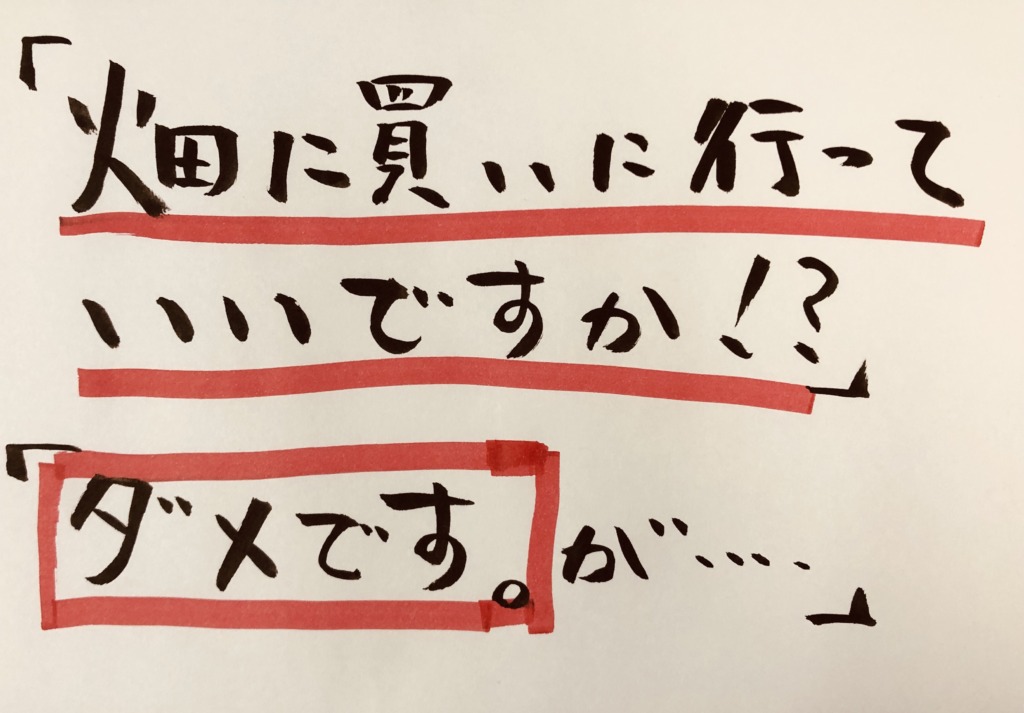 「畑に買いに行って
いいですか!?」
「ダメです。が‥‥」